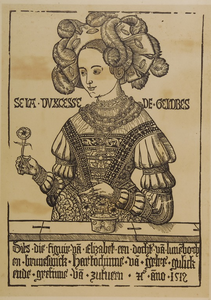 SELA · DVSCESSE · DE · GELDRES
Dits die figuir vā Elyzabet een dochtˀ vā lunebo̅rch
en brunswijck Hartochinne vā ghelre gulick
ende greffinne vā zutuen · ꝛ · año · 1512